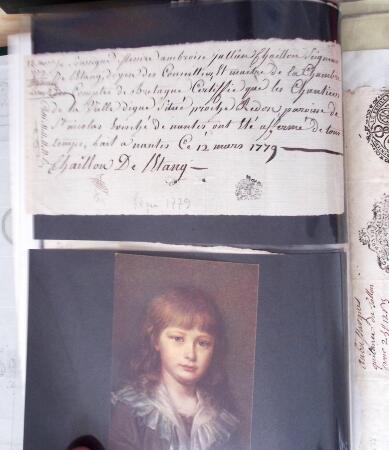 Je Soussigné Messire ambroise julien Chaillon Seigneur
De l'Etang, doyen des Conseillers Et maitre de la Chambre
des Comptes de bretagne Certiffie que les Chantiers
de la Ville digue Situé proche Redon paroisse de
St nicolas Evesché de nantes ont Eté affermé de tous
temps, fait a nantes Ce 12 mars 1779
Chaillon De l'Etang
1779
quittance de